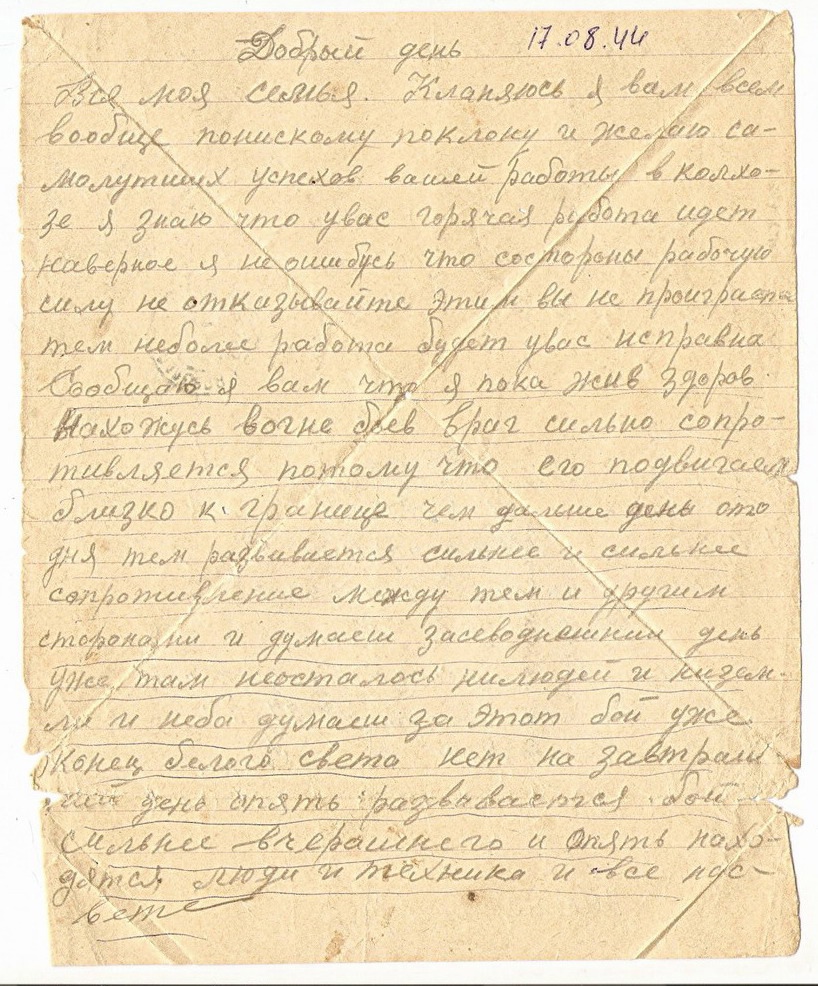 Добрый день 17.08.44
Вся моя семья. Кланяюсь я вам всем
вообще понискому поклону и желаю са-
молутших успехов вашей работы в колхо-
зе я знаю что увас горячая работа идет
наверное я не ошибусь что состороны рабочую
силу не отказывайте этим вы не проиграете
тем неболее работа будет увас исправна
Сообщаю я вам что я пока жив здоров
Нахожусь вогне боев враг сильно сопро-
тивляется потому что его подвигаем
близко к границе чем дальше день ото
дня тем развивается сильнее и сильнее
сопротивление между тем и другим
сторонами и думаеш засеводнешний день
уже там неосталось нилюдей и низем-
ли и неба думаеш за этот бой уже
конец белого света нет на завтраш
ний день опять развивается бой
сильнее вчерашнего и опять нахо-
дятся люди и техника и все нас-
вете